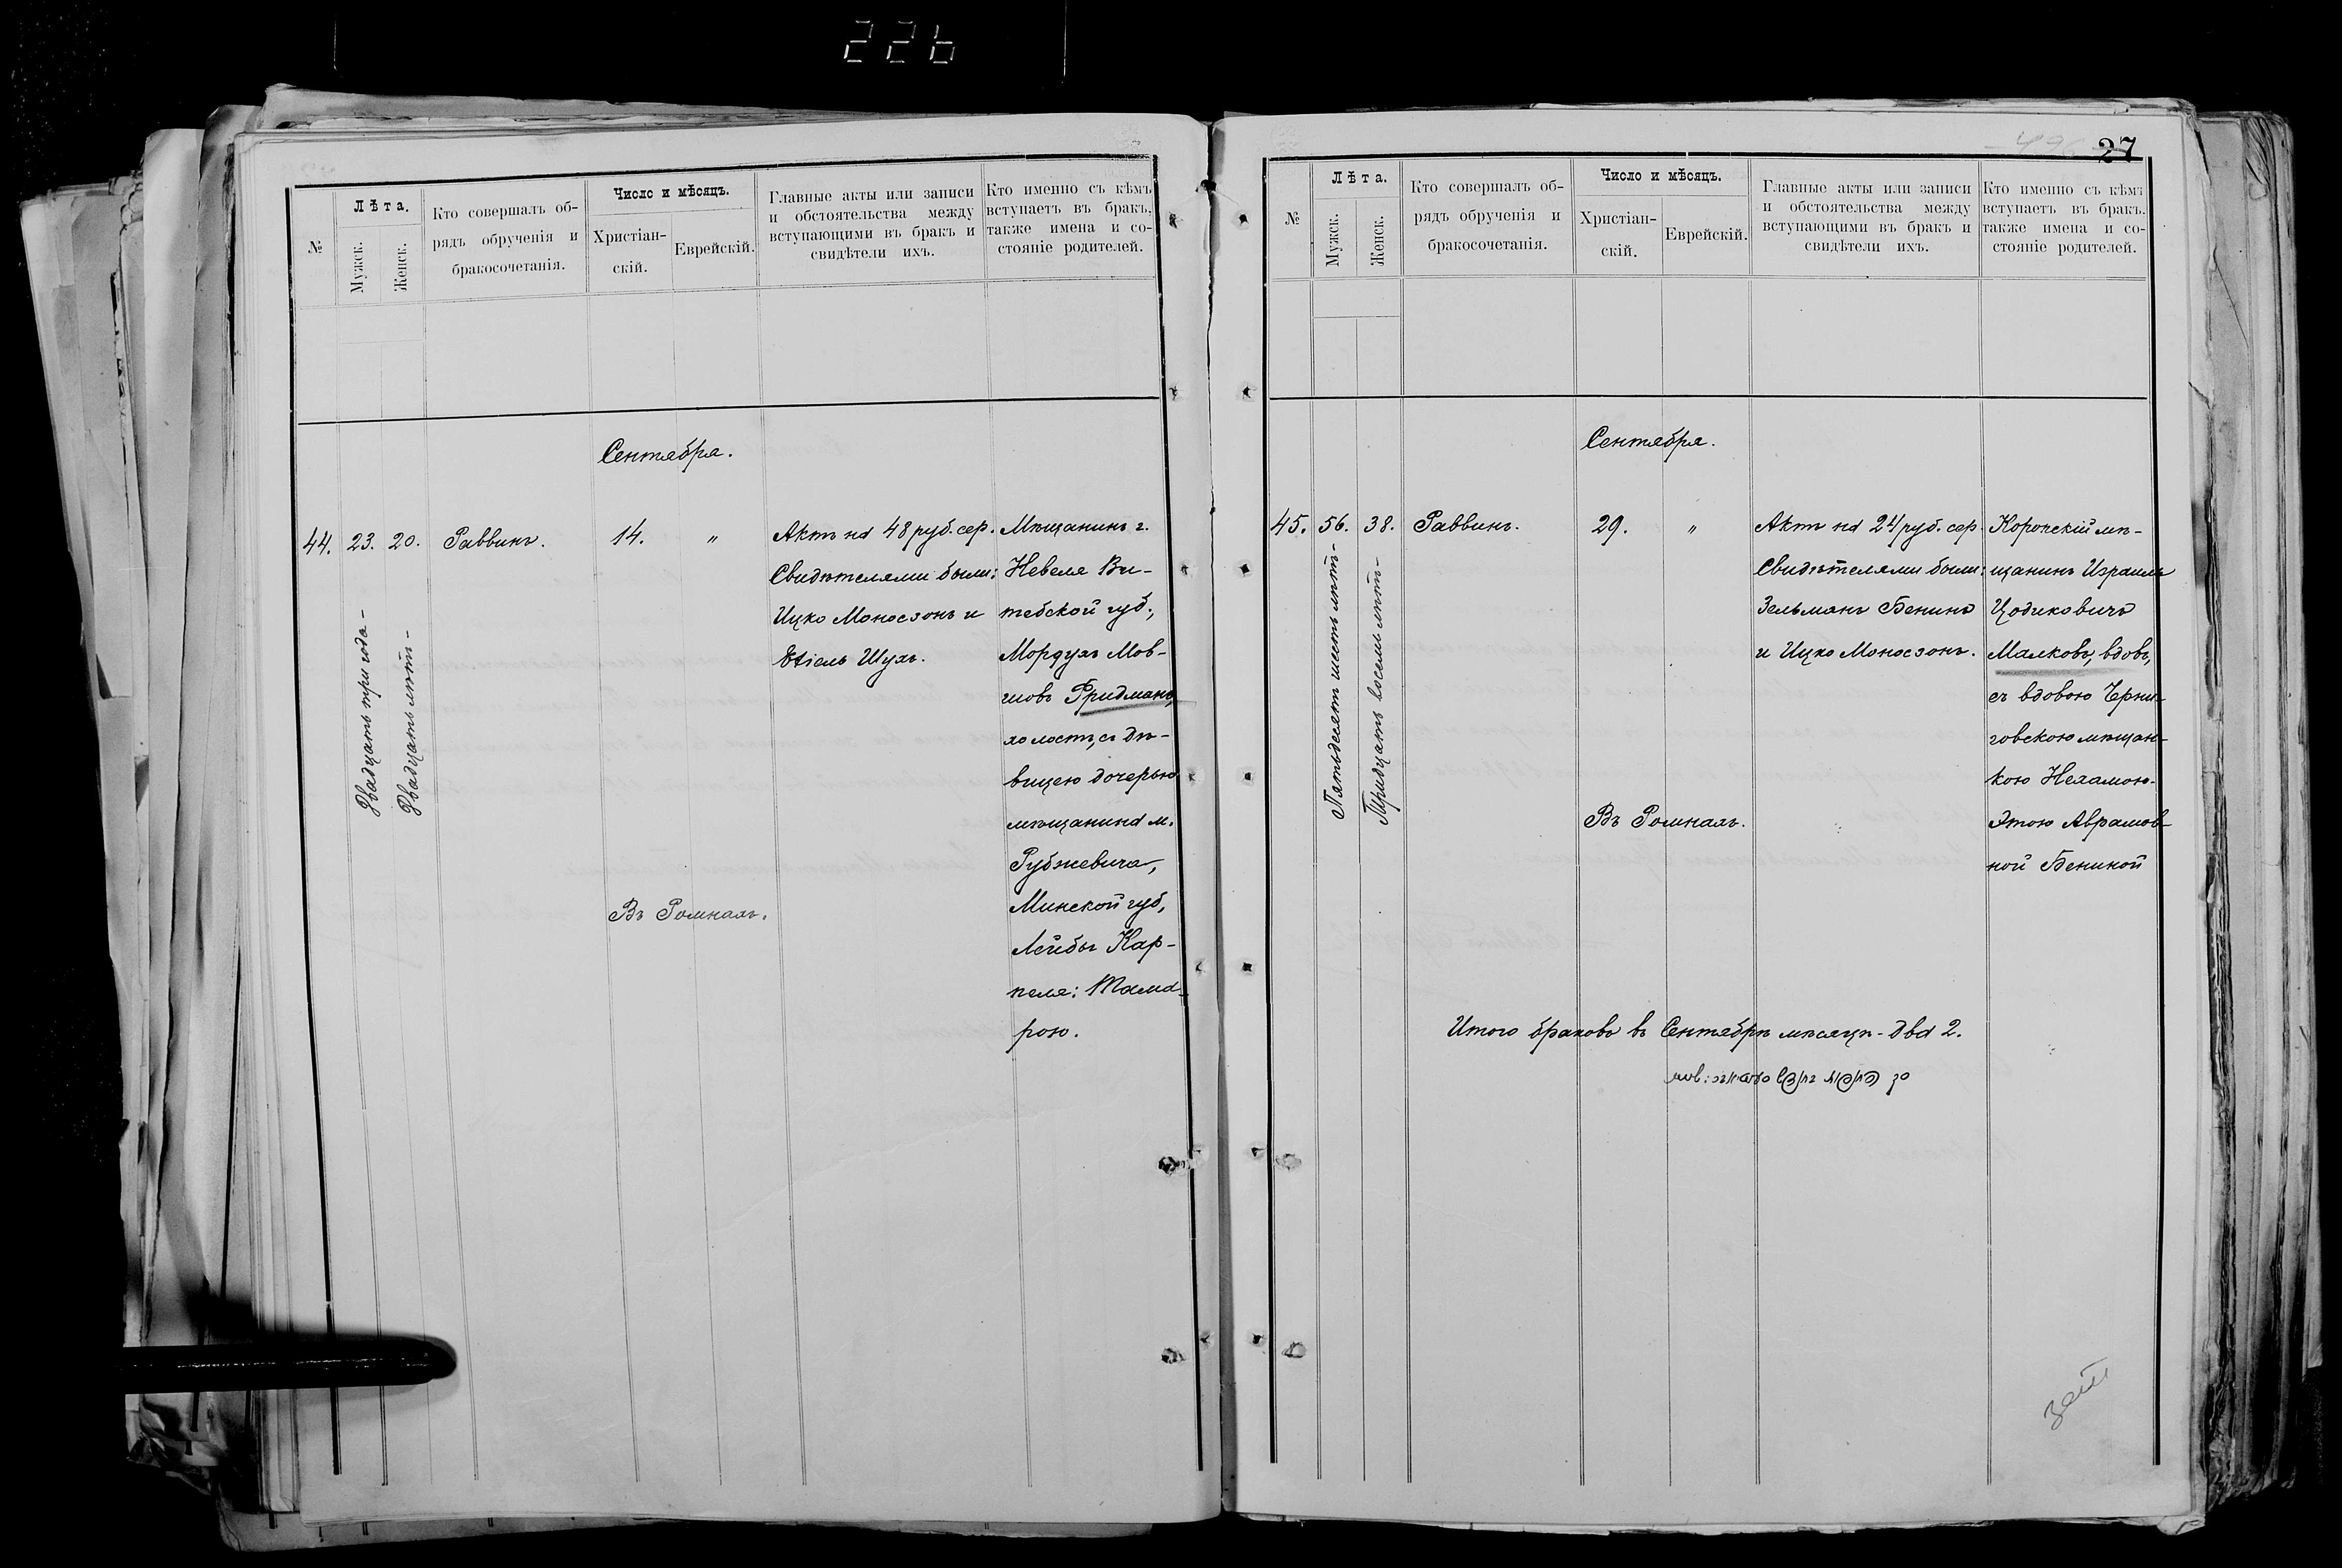 226
№
Лѣта.
Мужск.
Женск.
Кто совершалъ об-
рядъ обрученія и
бракосочетанія.
Число и мѣсяцъ.
Христіан-
скій.
Еврейскій.
Главные акты или записи
и обстоятельства между
вступающими въ бракъ и
свидѣтели ихъ.
Кто именно съ кѣмъ
вступаетъ въ бракъ,
также имена и со-
стояніе родителей.
Сентября.
44.
23.
20.
Двадцать три года-
Двадцать лѣтъ-
Раввинъ.
14.
"
Въ Ромнахъ.
Актъ на 48 руб. сер.
Свидѣтелями были:
Ицко Моносзонъ и
Шухъ.
Мѣщанинъ г.
Невеля Ви-
тебской губ.,
Мордухъ Мов-
шовъ Фридманъ,
холостъ, съ дѣ-
вицею дочерью
мѣщанина м.
Рубжевича,
Минской губ,
Лейбы Кар-
пеля: Тама-
рою.
27
№
Лѣта.
Мужск.
Женск.
Кто совершалъ об-
рядъ обрученія и
бракосочетанія.
Число и мѣсяцъ.
Христіан-
скій.
Еврейскій.
Главные акты или записи
и обстоятельства между
вступающими въ бракъ и
свидѣтели ихъ.
Кто именно съ кѣмъ
вступаетъ въ бракъ,
также имена и со-
стояніе родителей.
Сентября.
45.
56.
38.
Пятьдесятъ шесть лѣтъ-
Тридцать восемь лѣтъ-
Раввинъ.
29.
"
Въ Ромнахъ.
Актъ на 24 руб. сер.
Свидѣтелями были:
Зельманъ Бенинъ
и Ицко Моносзонъ.
Корочскій мѣ-
щанинъ Израиль
Цодиковичъ
Малковъ, вдовъ,
съ вдовою Черни-
говскою мѣщан-
кою Нехамою-
Этою Аврамов-
ной Бениной
Итого браковъ въ Сентябрѣ мѣсяцѣ - два 2.